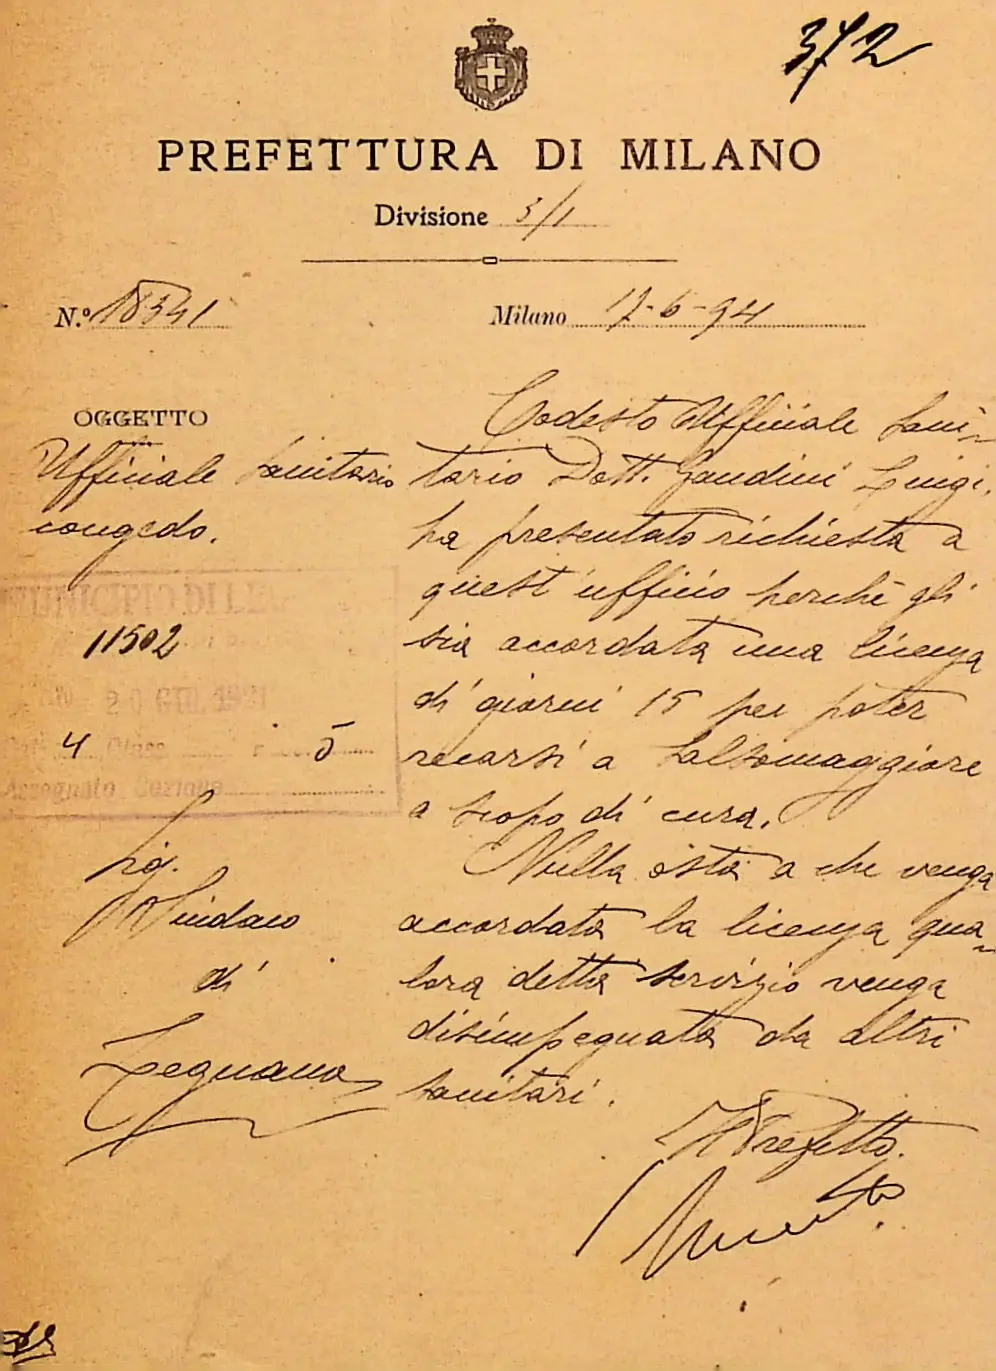 372
PREFETTURA DI MILANO
Divisione 3/1
N.º 18341
Milano 17-6-924
OGGETTO
Ufficiale Sanitario
congedo.
MUNICIPIO DI
11502
20 GIU. 1921
4 5
Assegnato
Sig.
Sindaco
di
Legnano
Codesto Ufficiale Sani-
tario Dott. Gaudini Luigi,
ha presentato richiesta a
quest'ufficio perchè gli
sia accordata una licenza
di giorni 15 per poter
recarsi a Salsomaggiore
a scopo di cura.
Nulla osta a che venga
accordata la licenza qua-
lora detto servizio venga
disimpegnato da altri
sanitari.
Il Prefetto.